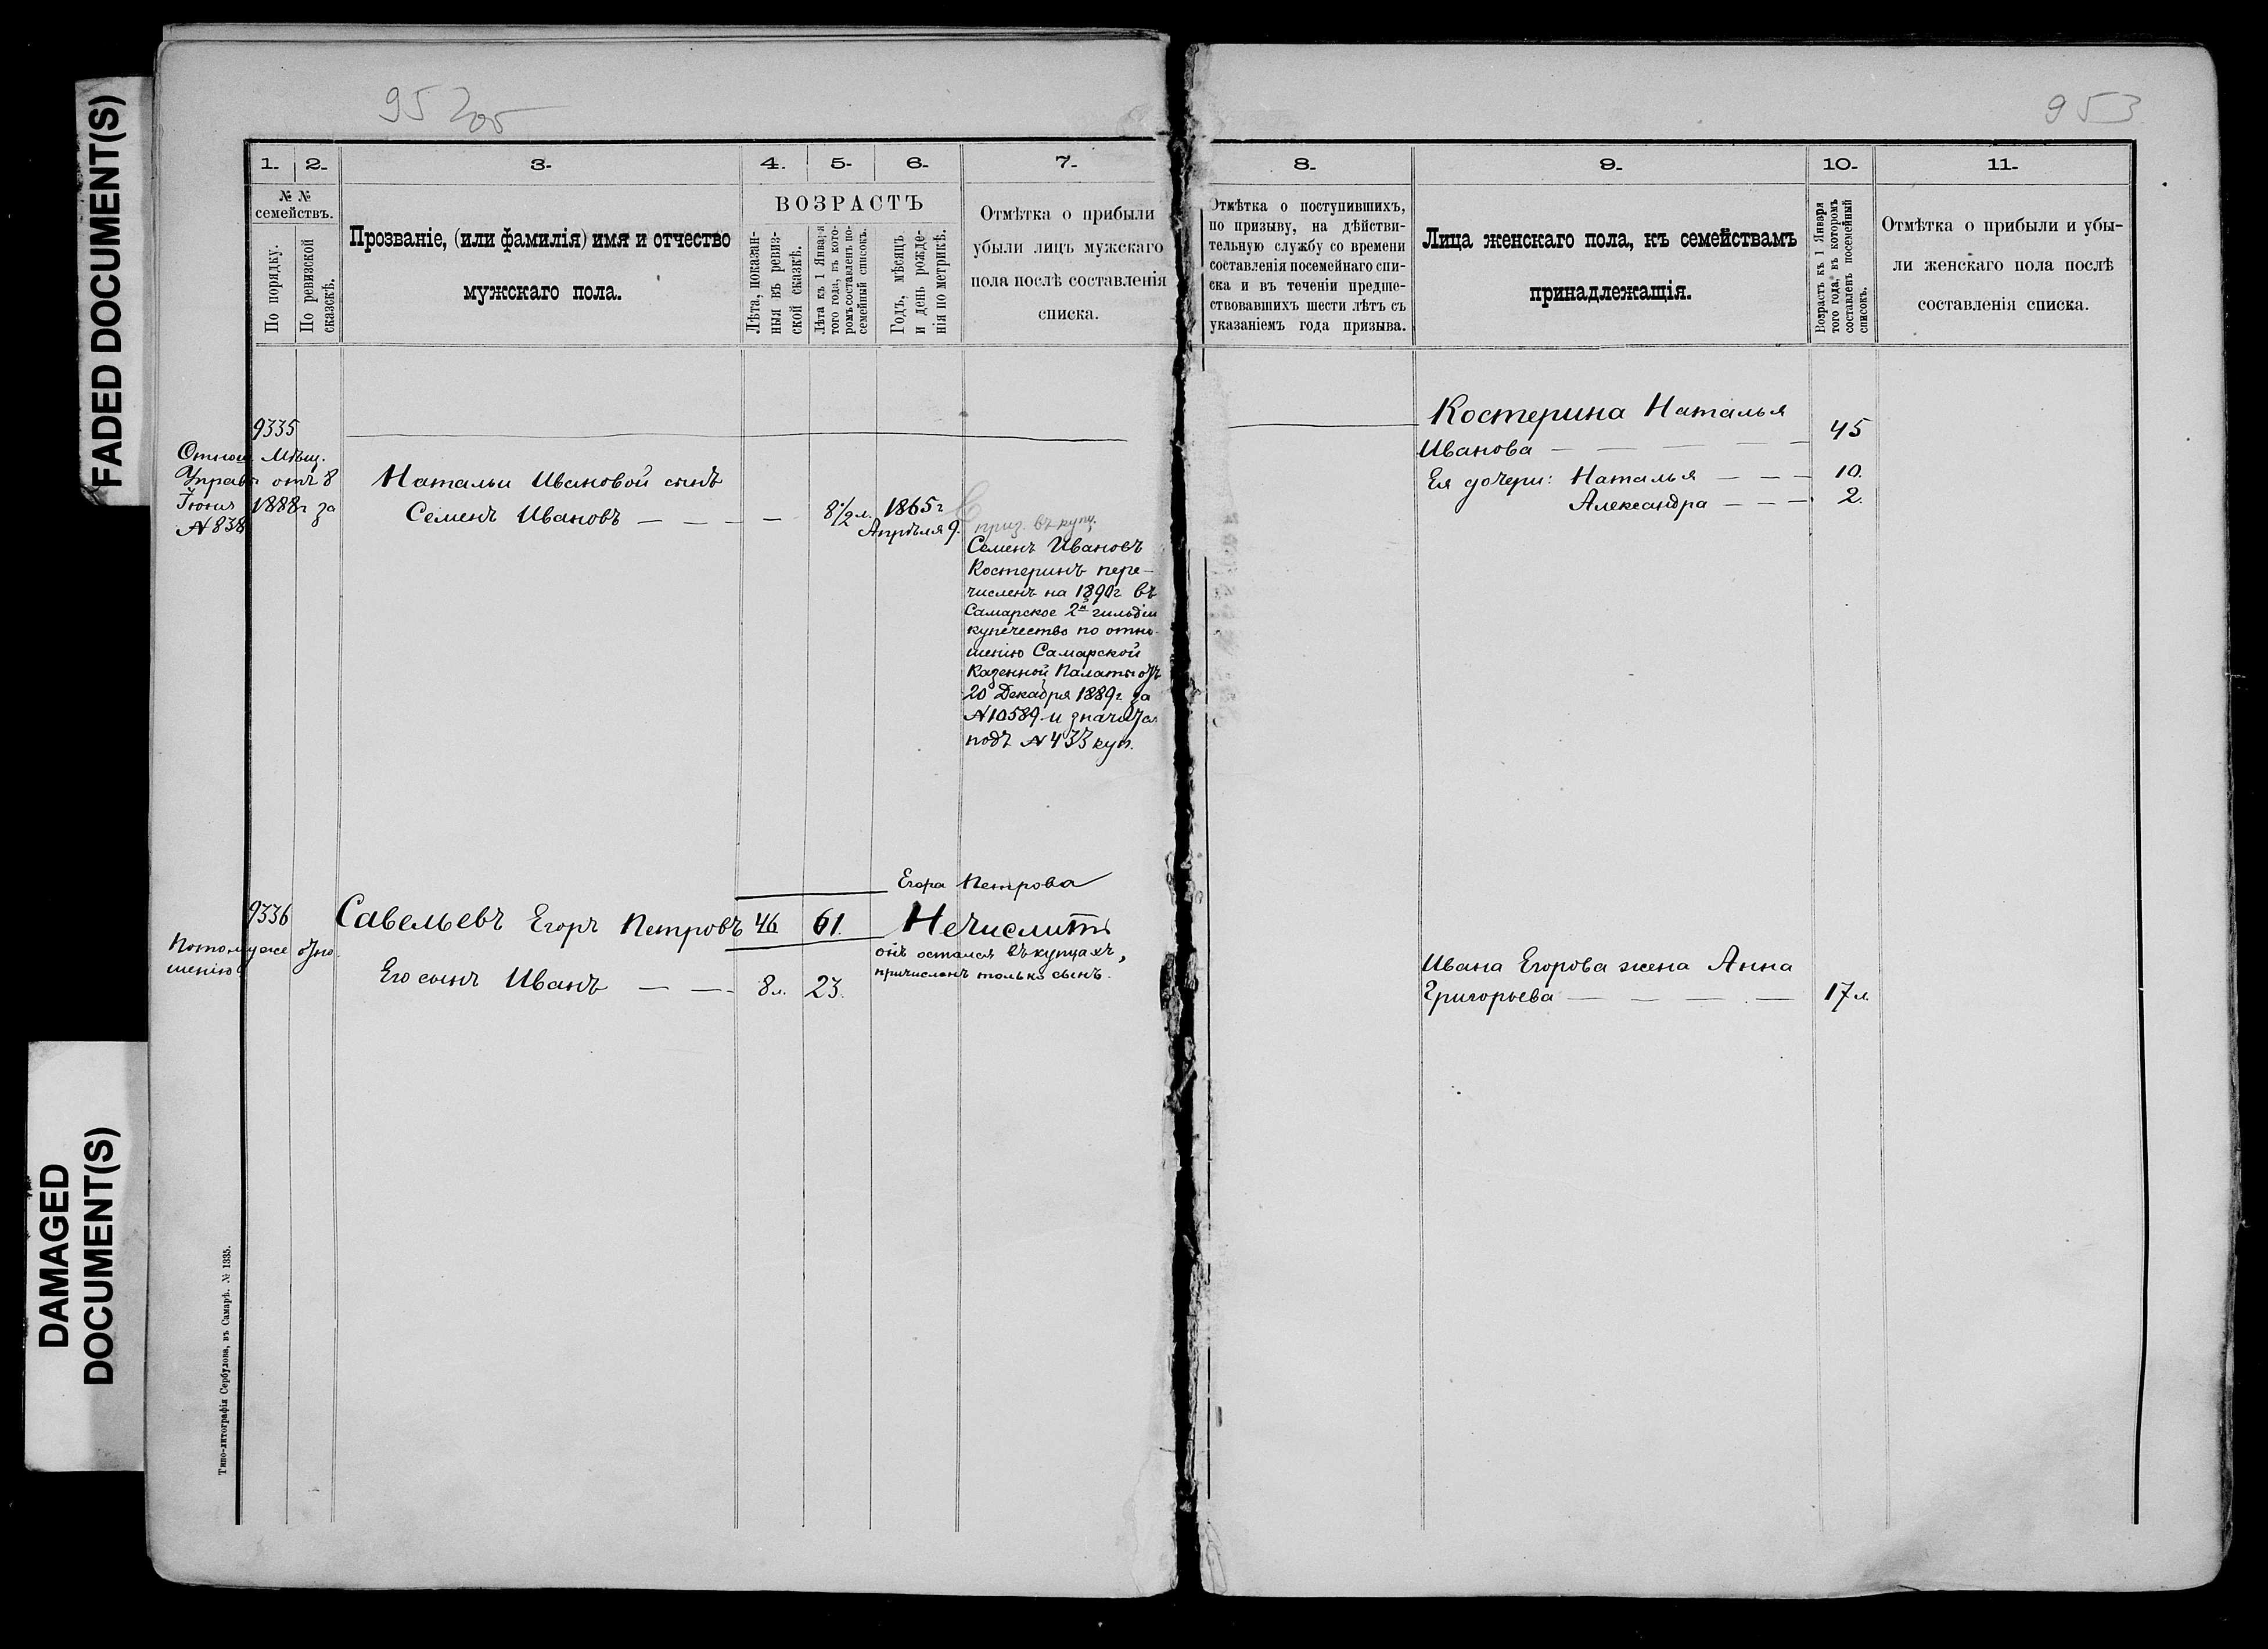 FADED DOCUMENT(S)
DAMAGED
DOCUMENT(S)
95
953
1.
2.
3.
4.
5.
6.
7.
№ №
семействъ.
По порядку.
По ревизской
сказкѣ.
Прозваніе, (или фамилія) имя и отчество
мужскаго пола.
ВОЗРАСТЪ
Лѣта, показан-
ныя въ ревиз-
ской сказкѣ.
Лѣта къ 1 Января
того года, въ кото-
ромъ составленъ по-
семейный списокъ.
Годъ, мѣсяцъ
и день рожде-
нія по метрикѣ.
Отмѣтка о прибыли
убыли лицъ мужскаго
пола послѣ составленія
списка.
9335
Отнош. Мѣщ.
Управы отъ 8
Іюня 1888г за
№ 838
Натальи Ивановой сынъ
Семенъ Ивановъ — — — —
8 1/2 л.
1865г
Апрѣля 9.
приз. въ купц.
Семенъ Ивановъ
Костеринъ пере-
численъ на 1890г въ
Самарское 2й гильдіи
купечество по отно-
шенію Самарской
Казенной Палаты отъ
20 Декабря 1889г. за
№ 10589 и значится
подъ № 433 куп.
Егора Петрова
9336
Савельевъ Егоръ Петровъ 46 61.
Нечислить
Потому же отно-
шенію
онъ остался въ купцахъ,
причисленъ только сынъ.
Его сынъ Иванъ — — - 8л. 23.
Типо-литографія Сербулова, въ Самарѣ. № 1335.
8.
9.
10.
11.
Отмѣтка о поступившихъ,
по призыву, на дѣйстви-
тельную службу со времени
составленія посемейнаго спи-
ска и въ теченіи предше-
ствовавшихъ шести лѣтъ съ
указаніемъ года призыва.
Лица женскаго пола, къ семействамъ
принадлежащія.
Возрастъ къ 1 Января
того года, въ которомъ
составленъ посемейный
списокъ.
Отмѣтка о прибыли и убы-
ли женскаго пола послѣ
составленія списка.
Костерина Наталья
Иванова — — — — 45
Ея дочери: Наталья — — — 10.
Александра — — — 2.
Ивана Егорова жена Анна
Григорьева — — — — 17 л.